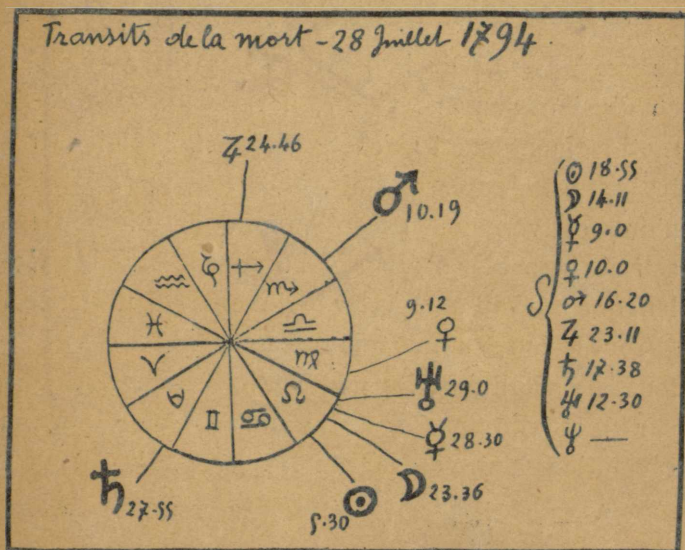 Transits de la mort - 28 Juillet 1794.
♃ 24.46
♂ 10.19
9.12 ♀
♅ 29.0
☿ 28.30
☽ 23.36
5.30 ☉
♄ 27.55
♑ ♐ ♏ ♎ ♍ ♌ ♋ ♊ ♉ ♈ ♓ ♒
☉ 18.55
☽ 14.11
☿ 9.0
♀ 10.0
♂ 16.20
♃ 23.11
♄ 17.38
♅ 12.30
♆ —